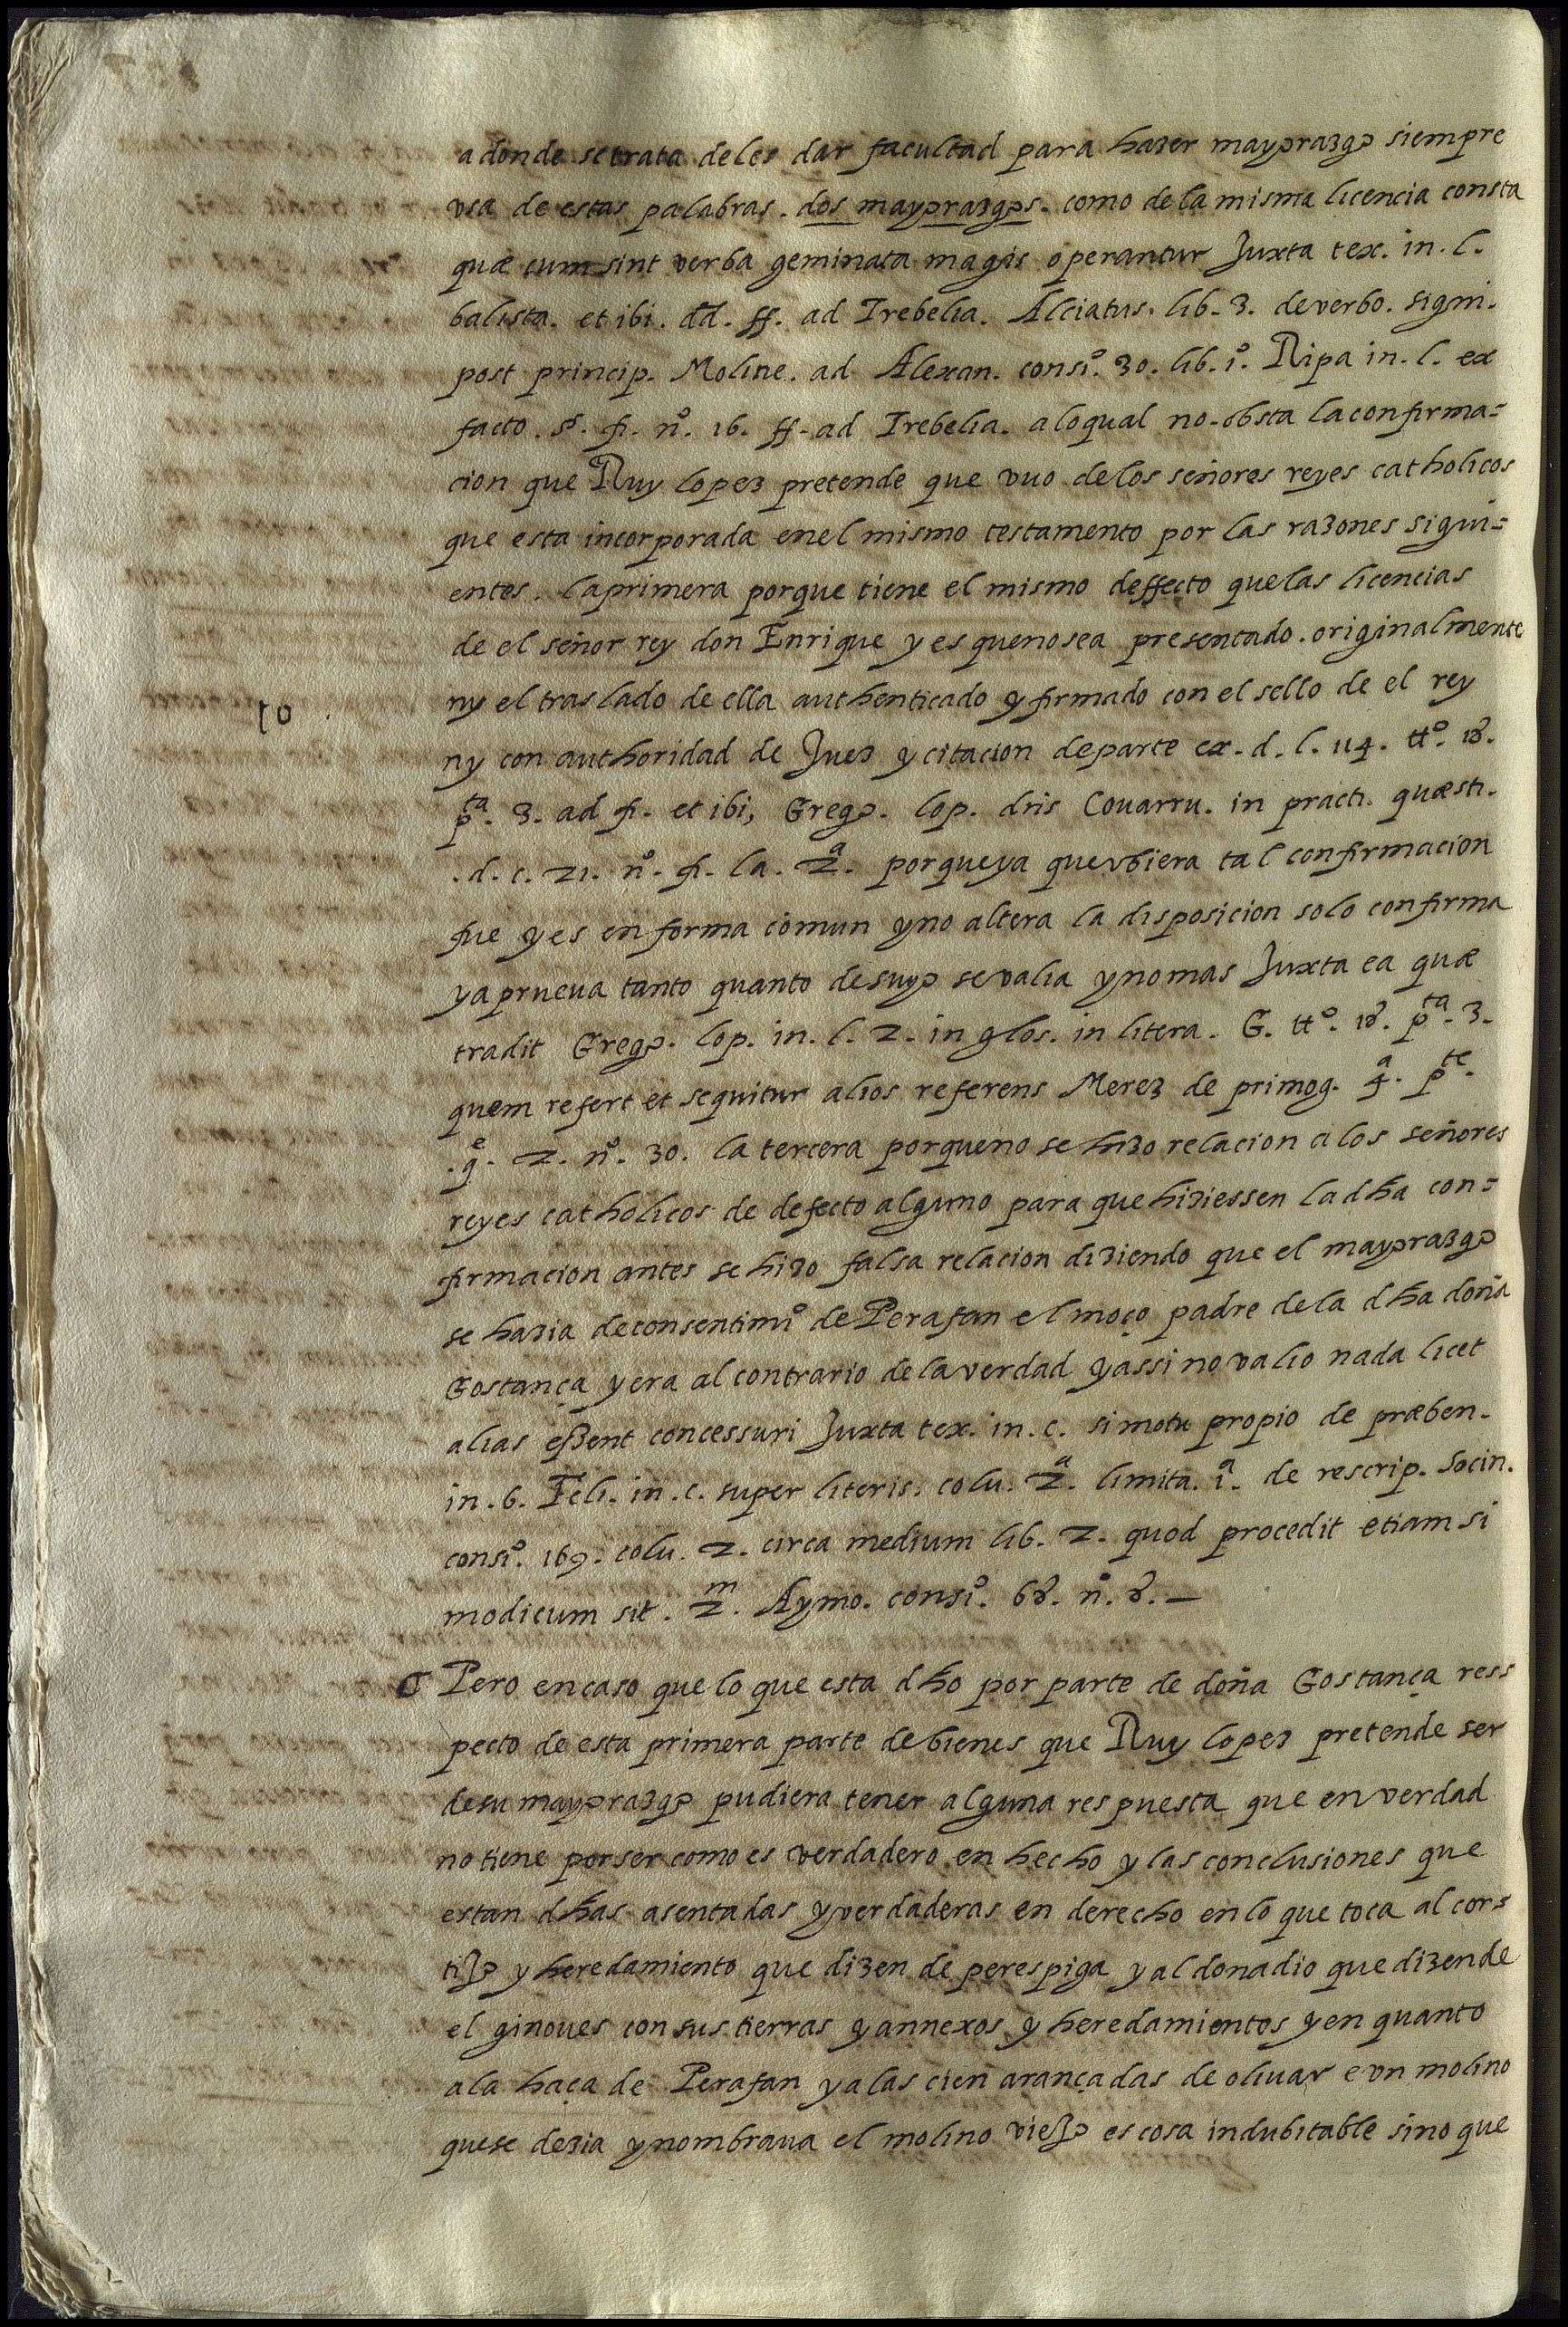 adonde setrata deles dar facultad para hazer mayorazgo siempre
vsa de estas palabras. dos mayorazgos. como dela misma licencia consta
quæ cum sint verba geminata magis operantur Juxta tex. in. l.
balista. et ibi. dd. ff. ad Trebelia. Alciatus. lib. 3. deverbo. signi.
post princip. Moline. ad Alexan. consi.º 30. lib. i.º Ripa in. l. ex
facto. §. fi. n.º 16. ff. ad Trebelia. aloqual no. obsta laconfirma=
cion que Ruy lopez pretende que vuo delos señores reyes catholicos
que esta incorporada enel mismo testamento por las razones sigui=
entes. laprimera porque tiene el mismo deffecto quelas licencias
de el señor rey don Enrique y es quenosea presentado. originalmente
10
ny el traslado de ella authenticado y firmado con el sello de el rey
ny con authoridad de Juez y citacion departe ex. d. l. 114. tt.º 18.
p.ta 3. ad fi. et ibi, Grego. lop. dñs Couarru. in practi. quæsti.
.d. c. 21. n.º fi. la. 2.ª porqueya quevbiera tal confirmacion
fue y es en forma comun yno altera la disposicion solo confirma
yaprueua tanto quanto desuyo sevalia ynomas Juxta ea quæ
tradit Grego. lop. in. l. 2. in glos. in litera. G. tt.º 18. p.ta 3.
quem refert et sequitur alios referens Merez de primog. 4.ª p.te
.q.e 2. n.º 30. la tercera porqueno se hizo relacion a los señores
reyes catholicos de defecto alguno para que hiziessen la dha con=
firmacion antes se hizo falsa relacion diziendo que el mayorazgo
se hazia deconsentimiº de Perafan el moço padre dela dha doña
Gostança yera al contrario delaverdad yassi no valio nada licet
alias essent concessuri Juxta tex. in. c. si motu propio de præben.
in. 6. Feli. in. c. super literis. colu. 2.ª limita. i.ª de rescrip. Socin.
consi.º 169. colu. 2. circa medium lib. 2. quod procedit etiam si
modicum sit. 2.m Aymo. consi.º 68. n.º 8. —
Pero encaso que lo que esta dho por parte de doña Gostança res=
pecto de esta primera parte debienes que Ruy lopez pretende ser
desu mayorazgo pudiera tener alguna respuesta que en verdad
no tiene porser como es verdadero en hecho y las conclusiones que
estan dhas asentadas yverdaderas en derecho enlo que toca al cor=
tijo y heredamiento que dizen de perespiga y al donadio que dizende
el ginoues con sus tierras y annexos y heredamientos yen quanto
ala haça de Perafan yalas cien arançadas de oliuar e vn molino
quese dezia ynombraua el molino viejo es cosa indubitable sino que